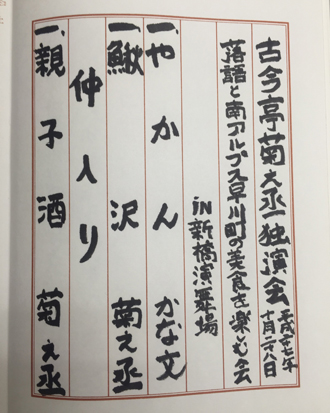 古今亭菊之丞独演会
平成廿七年
十月廿八日
落語と南アルプス早川町の美食を楽しむ会
in新橋演舞場
一、やかん かな文
一、鰍沢 菊之丞
仲入り
一、親子酒 菊之丞